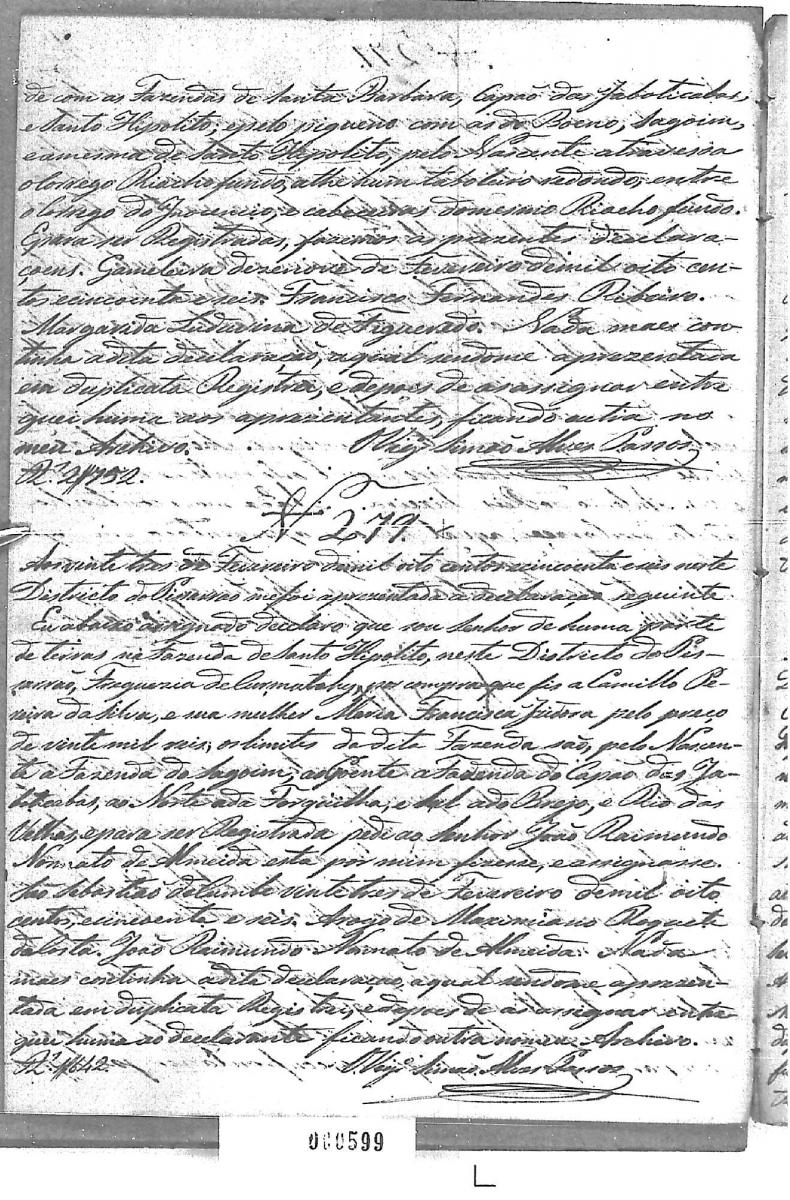 de com as Fazendas de Santa Barbara, Capão das Jaboticabas,
e Santo Hipolito, e pelo piqueno com as do Boeno, Sagoim,
e a mesma de Santo Hipolito, pelo Nascente atravessa
o Corrego Riacho fundo, athe hum taboleiro redondo, entre
o Corrego do Inocencio, e cabeceiras do mesmo Riacho fundo.
E para ser Registradas, fazemos as prezentes declara-
çoens. Gameleira dezenove de Fevereiro de mil oito cen-
tos e cincoenta e seis. Francisco Fernandes Ribeiro.
Margarida Ludovina de Figueredo. Nada mais con-
tinha a dita declaração, a qual sendome aprezentada
em duplicata Registrei, e depois de as assignar entre
guei huma aos aprezentantes, ficando outra no
meu Archivo. Vigº Simão Alves Passos
Rs. 2$752.
Nº 279
Aos vinte tres de Fevereiro de mil oito centos e cincoenta e seis neste
Districto do Pissarrão me foi aprezentada a declaração seguinte
Eu abaixo assignado declaro que sou Senhor de huma parte
de terras na Fazenda de Santo Hipolito, neste Districto do Pis-
sarrão, Freguezia de Curmatahy, por compra que fis a Camillo Pe-
reira da Silva, e sua mulher Maria Francisca Izidora pelo preço
de vinte mil reis; os limites da dita Fazenda são, pelo Nascen-
te a Fazenda do Sagoim, ao Poente a Fazenda do Capão das Ja-
boticabas, ao Norte a da Forquilha, e Sul a do Brejo, e Rio das
Velhas, e para ser Registrada pede ao Senhor João Raimundo
Nonnato de Almeida esta por mim fizesse, e assignasse.
São Sebastião de Cumbe vinte tres de Fevereiro de mil oito
centos, e cincoenta e seis. Arogo de Maximiano Roquete
da Costa. João Raimundo Nonnato de Almeida. Nada
mais continha a dita declaração, a qual sendome aprezen-
tada em duplicata Registrei, e depois de as assignar entre
guei huma ao declarante ficando outra no meu Archivo.
Rs. 1$642. Vigº Simão Alves Passos
000599
L